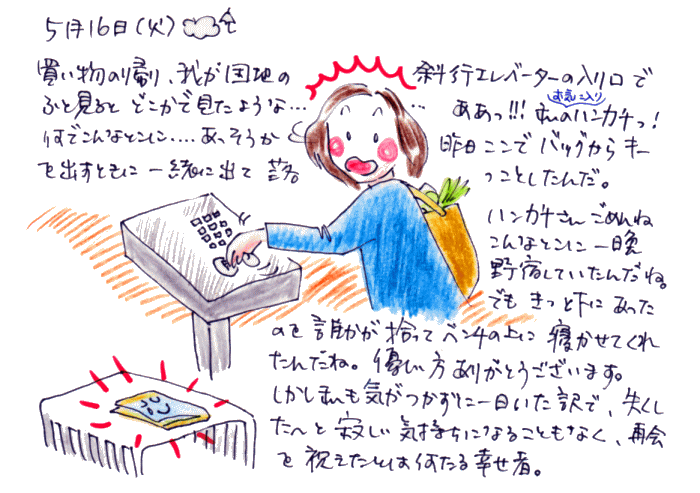 5月16日(火)
買い物の帰り、我が団地の斜行エレベーターの入り口で
ふと見ると どこかで見たような… … ああっ!!! 私のハンカチっ!
お気に入り
何でこんなところに…. あっそうか 昨日ここで バッグからキー
を出すときに 一緒に出て 落っことしたんだ。
ハンカチさん ごめんね
こんなところに 一晩
野宿していたんだね。
でも きっと下に あった
のを 誰かが 拾って ベンチの上に 寝かせてくれ
たんだね。優しい方 ありがとうございます。
しかし 私も 気がつかずに 一日いた訳で、失くし
た〜と 寂しい 気持ちに なることも なく、再会
を 祝えたとは 何たる 幸せ者。